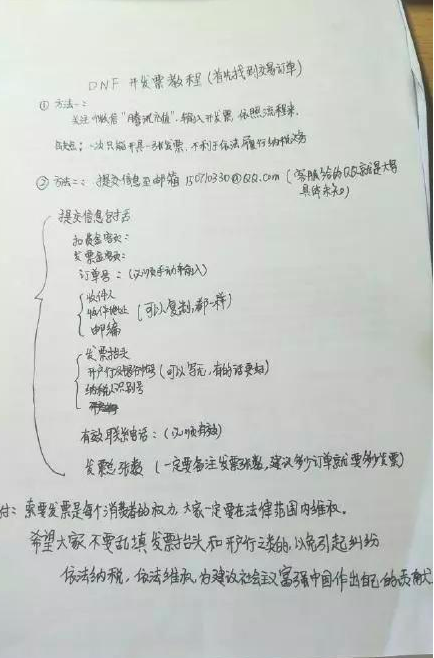 DNF 开发票教程(首先找到交易订单)
① 方法一:
关注微信"腾讯充值",输入开发票 依照流程来,
缺点:一次只能开具一张发票,不利于依法履行纳税义务
② 方法二:提交信息至邮箱 @QQ.com(客服给的QQ就是大号 具体未知)
提交信息包括
扣费金额:
发票金额:
订单号:(必须手动输入)
收件人
收件地址 (可以复制,都一样)
邮编
发票抬头
开户行及银行帐号(可以写无,有的话要如)
纳税人识别号
有效联系电话:(必须有效)
发票总张数(一定要备注发票张数,建议多少订单就要多少发票)
付:索要发票是每个消费者的权力,大家一定要在法律范围内维权,
希望大家不要乱填发票抬头和开户行之类的,以免引起纠纷
依法纳税,依法维权,为建设社会主义富强中国作出自己的贡献